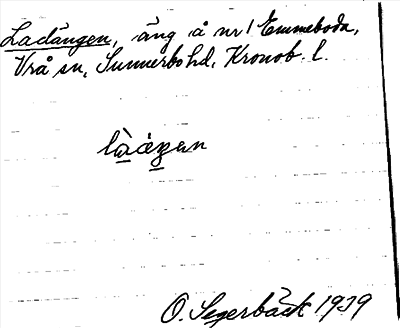 Ladängen, äng å nr 1 Emmeboda,
Vrå sn, Sunnerbo hd, Kronob. l.
làáŋen
O. Segerbäck 1939